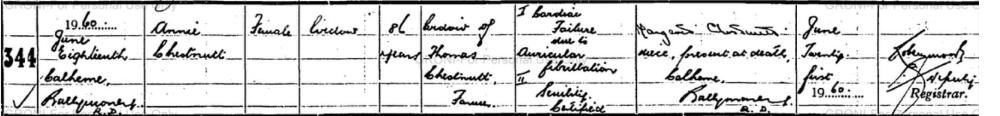 344
1960
June
Eighteenth
Calheme,
Ballymoney
R.D.
Annie
Chestnutt
Female
Widow
86
years
Widow of
Thomas
Chestnutt.
Farmer
I Cardiac
Failure
due to
Auricular
fibrillation
II
Senility
Certified
Chestnutt
niece, present at death,
Calheme,
Ballymoney
R.D.
June
Twenty
first,
1960
Deputy
Registrar.